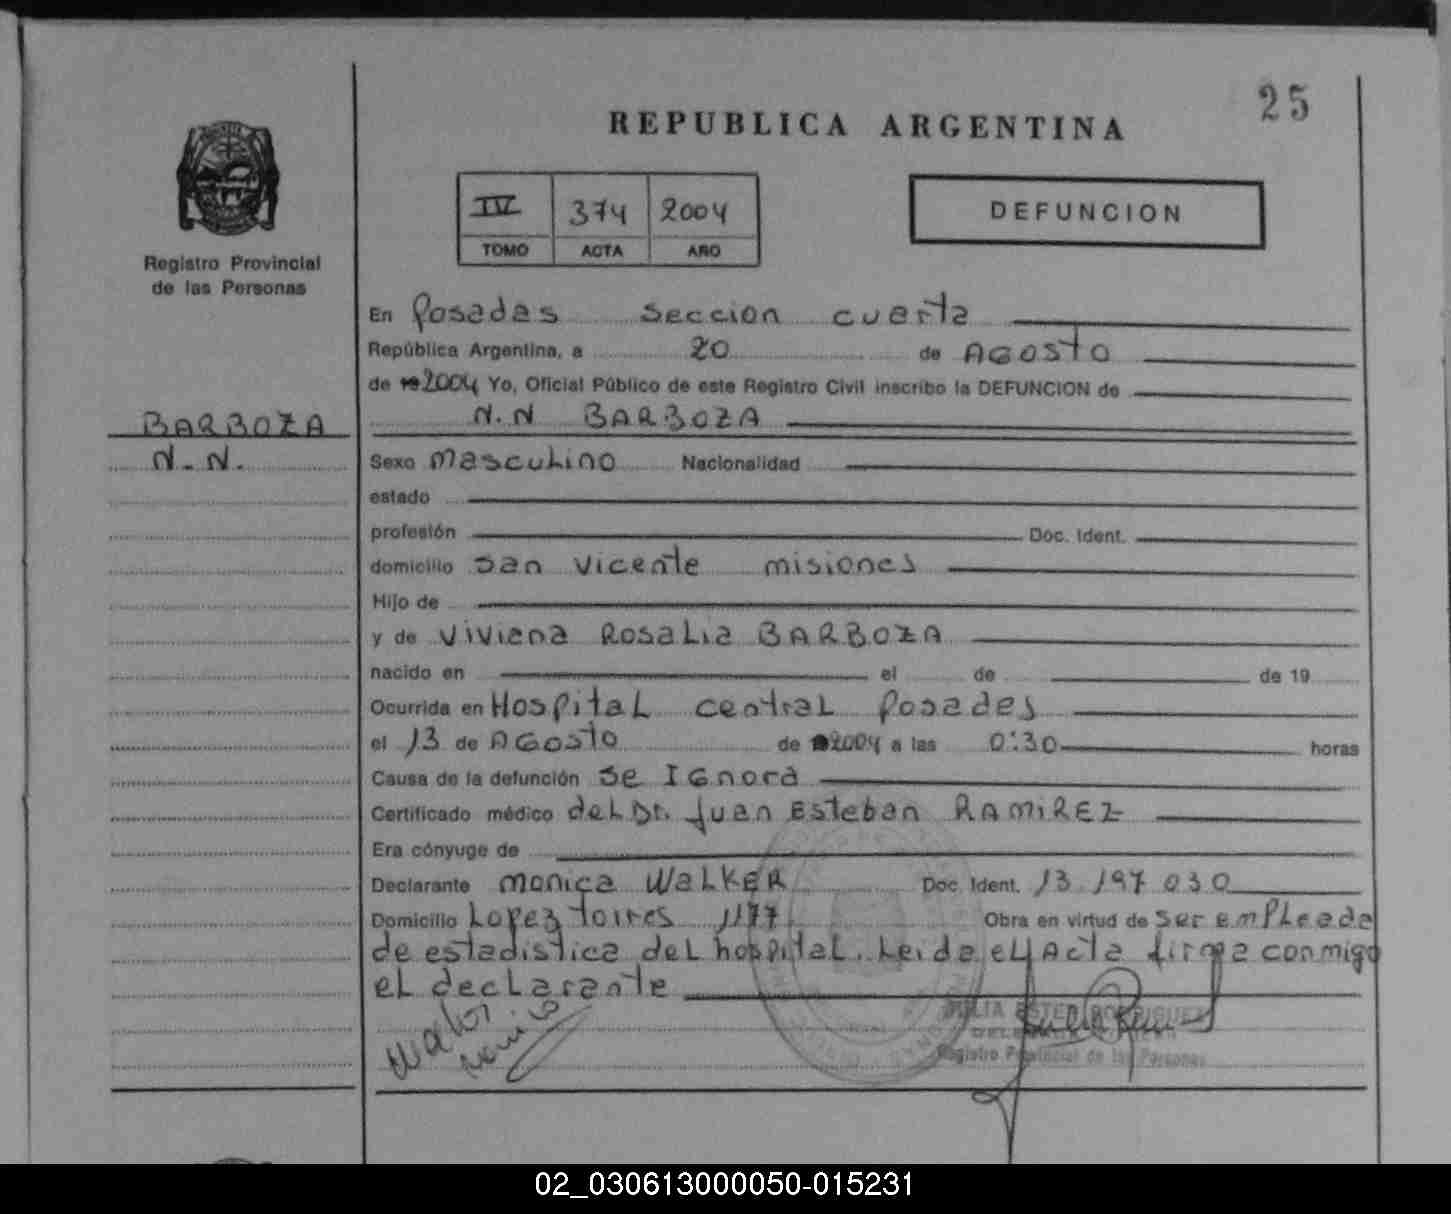 25
REPUBLICA ARGENTINA
IV 374 2004
TOMO ACTA AÑO
DEFUNCION
Registro Provincial
de las Personas
BARBOZA
N.N.
En Posadas Seccion cuarta
República Argentina, a 20 de AGOSTO
de 2004 Yo, Oficial Público de este Registro Civil inscribo la DEFUNCION de
N.N BARBOZA
Sexo masculino Nacionalidad
estado
profesión Doc. Ident.
domicilio San Vicente misiones
Hijo de
y de Viviana Rosalia BARBOZA
nacido en el de de 19
Ocurrida en Hospital central Posadas
el 13 de AGOSTO de 2004 a las 0:30 horas
Causa de la defunción Se Ignora
Certificado médico del Dr. Juan Esteban RAMIREZ
Era cónyuge de
Declarante monica WALKER Doc. Ident. 13.197.030
Domicilio Lopez torres 1177 Obra en virtud de Ser empleada
de estadistica del hospital. Leida el Acta firma conmigo
el declarante
Walker
Monica
JULIA ESTER RODRIGUEZ
Registro Provincial de las Personas
02_030613000050-015231